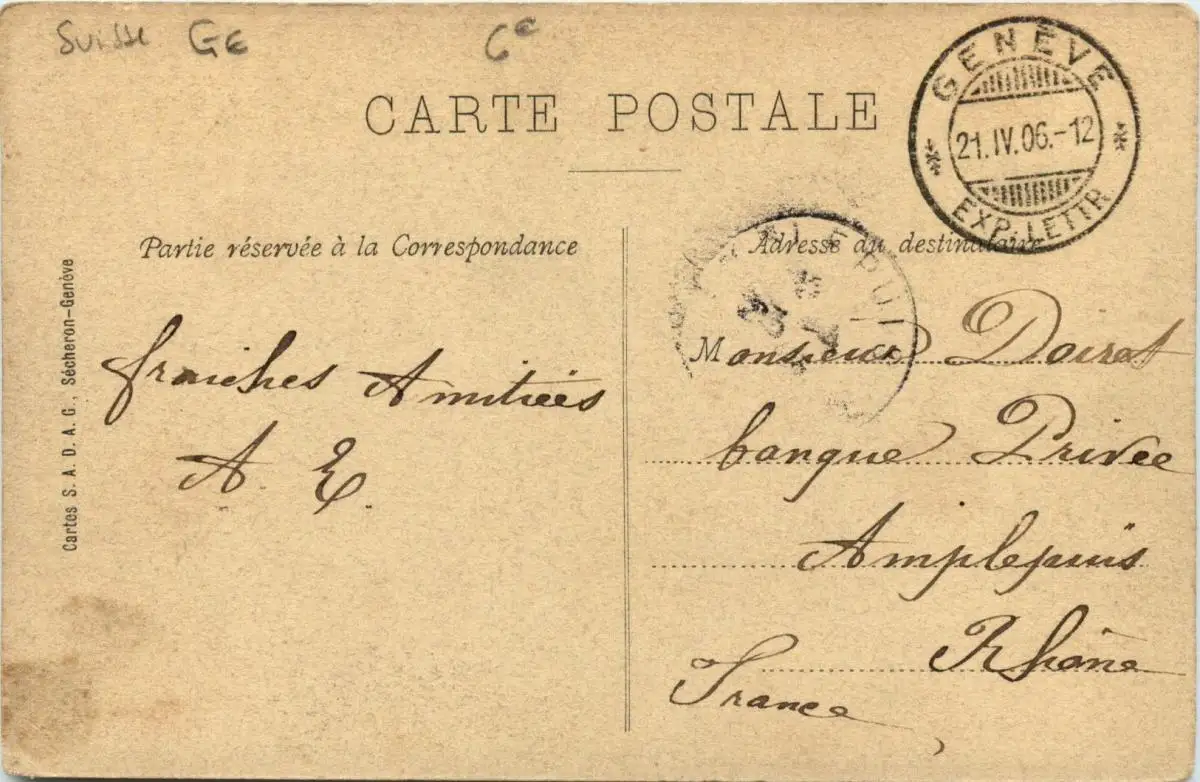 Suisse GE
6e
CARTE POSTALE
GENÈVE
21.IV.06.-12
EXP. LETTR
Partie réservée à la Correspondance
Adresse du destinataire
Cartes S. A. D. A. G., Sécheron-Genève
fraiches Amitiées
A. E.
Monsieur Doirat
banque Privée
Amplepuis
Rhône
France